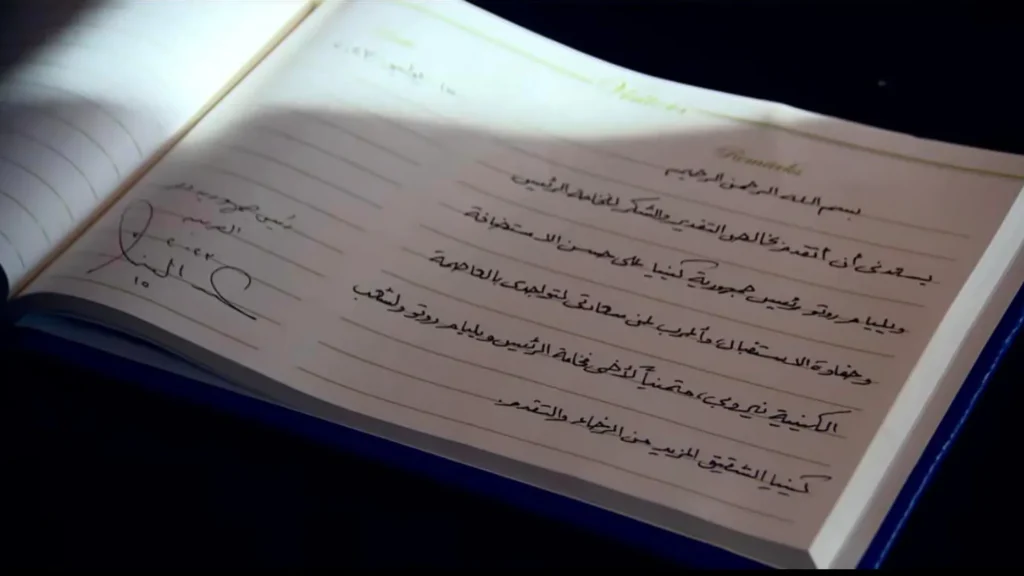 ١٥ يوليو ٢٠٢٣
Remarks
بسم الله الرحمن الرحيم
يسعدني أن أتقدم بخالص التقدير والشكر لفخامة الرئيس
ويليام روتو رئيس جمهورية كينيا على حسن الاستضافة
وحفاوة الاستقبال، وأعرب عن سعادتي لتواجدي بالعاصمة
الكينية نيروبي، متمنياً لأخي فخامة الرئيس ويليام روتو ولشعب
كينيا الشقيق المزيد من الرخاء والتقدم.
رئيس جمهورية مصر
العربية